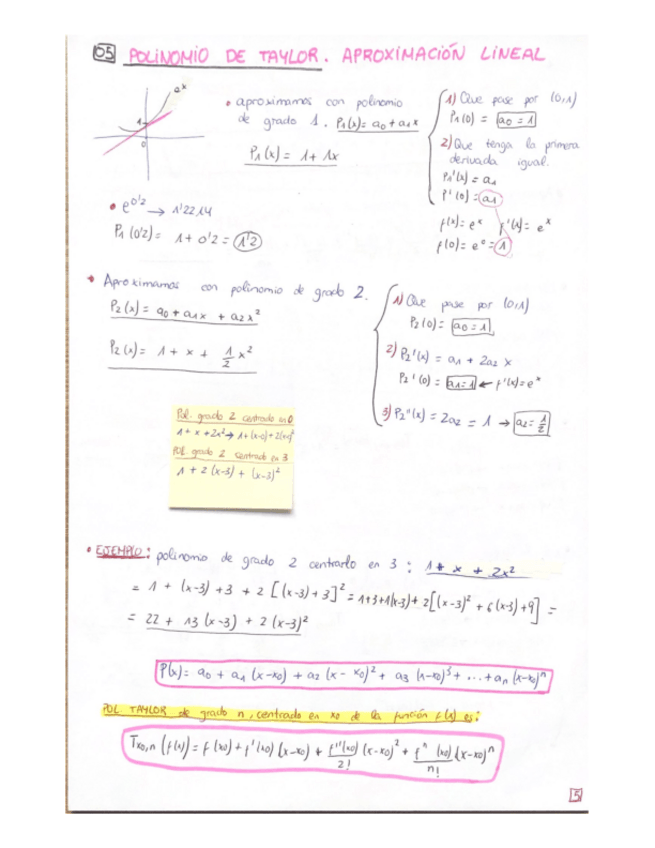 05 POLINOMIO DE TAYLOR. APROXIMACIÓN LINEAL
e^x
1
0
• aproximamos con polinomio
de grado 1. P₁(x) = a₀ + a₁x
P₁(x) = 1 + 1x
1) Que pase por (0,1)
P₁(0) = a₀ = 1
2) Que tenga la primera
derivada igual.
P₁'(x) = a₁
P'(0) = a₁
f(x) = e^x f'(x) = e^x
f(0) = e^0 = 1
• e^0'2 → 1'2214
P₁(0'2) = 1 + 0'2 = 1'2
• Aproximamos con polinomio de grado 2.
P₂(x) = a₀ + a₁x + a₂x²
P₂(x) = 1 + x + 1/2 x²
1) Que pase por (0,1)
P₂(0) = a₀ = 1
2) P₂'(x) = a₁ + 2a₂ x
P₂'(0) = a₁ = 1 ← f'(x) = e^x
3) P₂''(x) = 2a₂ = 1 → a₂ = 1/2
Pol. grado 2 centrado en 0
1 + x + 2x² → 1 + (x-0) + 2(x-0)²
Pol. grado 2 centrado en 3
1 + 2(x-3) + (x-3)²
• EJEMPLO: polinomio de grado 2 centrarlo en 3 : 1 + x + 2x²
= 1 + (x-3) + 3 + 2 [(x-3) + 3]² = 1+3+1(x-3) + 2[(x-3)² + 6(x-3) + 9] =
= 22 + 13(x-3) + 2(x-3)²
P(x) = a₀ + a₁ (x-x₀) + a₂ (x-x₀)² + a₃ (x-x₀)³ + ... + aₙ (x-x₀)ⁿ
POL TAYLOR de grado n, centrado en x₀ de la función f(x) es:
Tx₀,n (f(x)) = f(x₀) + f'(x₀) (x-x₀) + f''(x₀)/2! (x-x₀)² + fⁿ(x₀)/n! (x-x₀)ⁿ
5